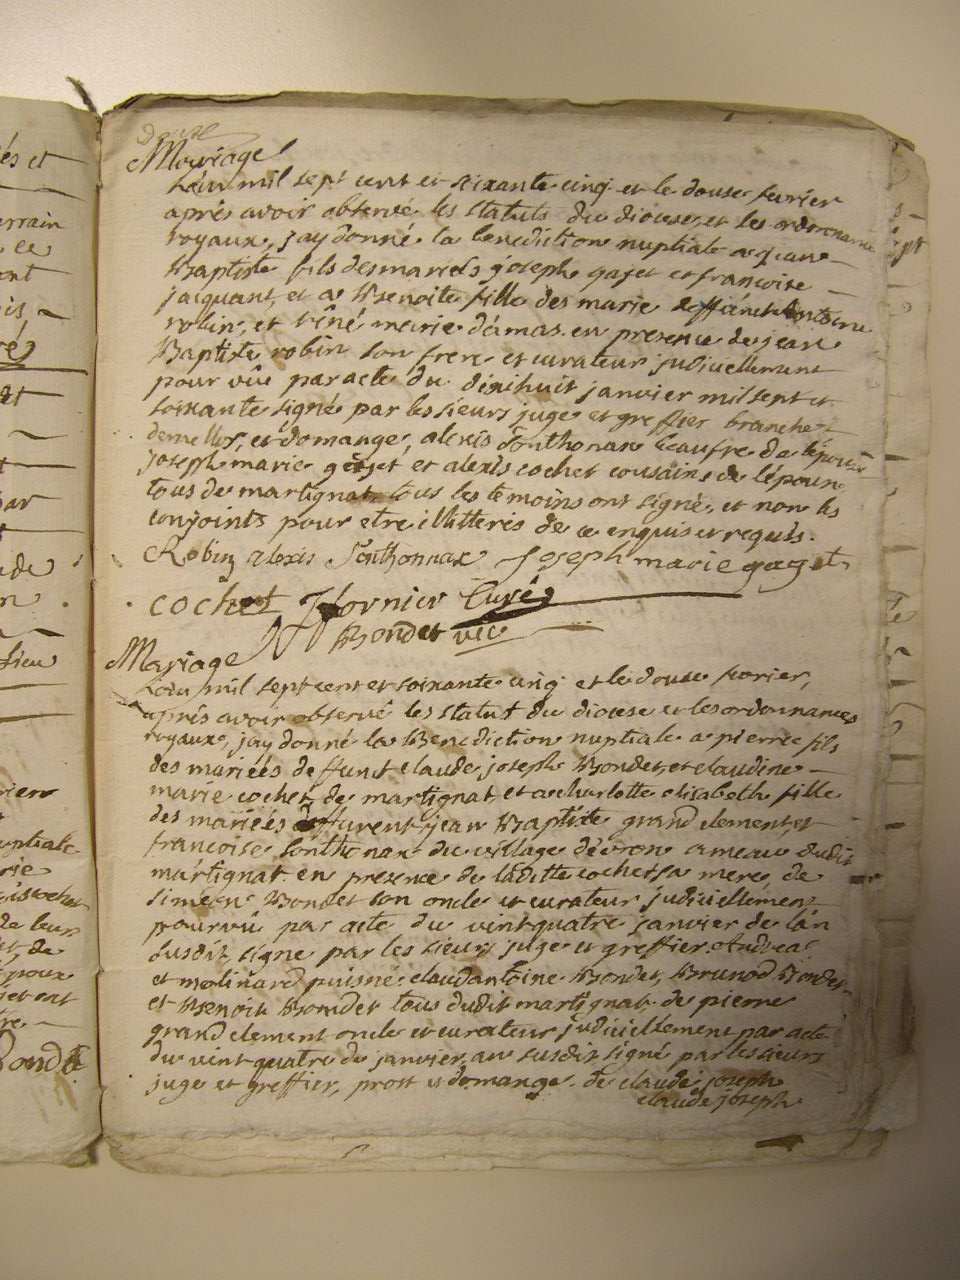 douse
Mariage
L'an mil sept cent et soixante cinq et le douse fevrier
après avoir observé les statuts du diocese, et les ordonnance
royaux, jay donné la benediction nuptiale a jean
Baptiste fils des mariés joseph gajet et francoise
jaiquant, et a Benoite fille des marie deffunct Antoine
robin, et réné marie damas en presence de jean
Baptiste robin son frere et curateur judiciellement
pour vû par acte du dixihuit janvier mil sept et
soixante signé par les sieurs juge et greffier branche
demeller, et domange, alexis Sonthonax beaufre de l'épouse
joseph marie gajet et alexis cochet cousains de l'époux
tous de martignat tous les temoins ont signé, et non les
conjoints pour etre illitteris de ce enquis et requis.
Robin alexis Sonthonnax joseph marie gaget
cochet fornier Curé
Bondet vic
Mariage
L'an mil sept cent et soixante cinq et le douse fevrier,
après avoir observé les statut du diocese et les ordonnances
royaux, jay donné la Benediction nuptiale a pierre fils
des mariées deffunct claude joseph Bondet, et claudine
marie cochet de martignat et a charlotte elisabeth fille
des mariées deffurent jean Baptiste grand clement et
francoise sonthonax du village d'évron ameau dudit
martignat en presence de laditte cochet sa mere, de
siméon Bondet son oncle et curateur judiciellement
pourvû par acte du vint quatre janvier de l'an
susdit, signé par les sieurs juge et greffier Andrea
et molinard puisné claud antoine Bondet, Brunod Bondet
et Benoit Bondet tous dudit martignat. de pierre
grand clement oncle et curateur judiciellement par acte
du vint quatre de janvier, an susdit signé par les sieurs
juge et greffier, prost et domange. de claude joseph
claude joseph